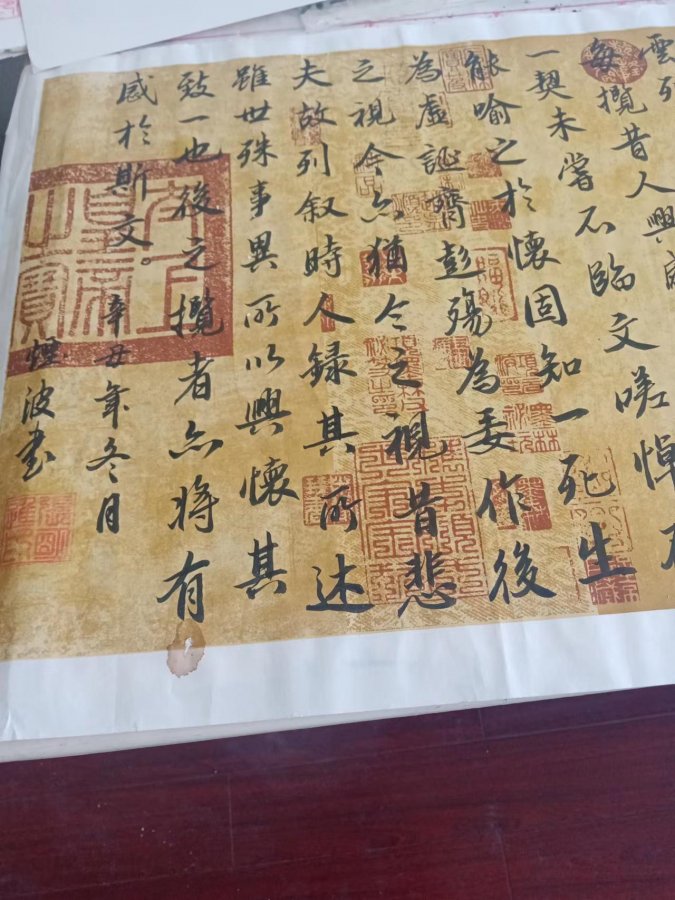 雲死
每攬昔人興感
一契未嘗不臨文嗟悼不
能喻之於懷固知一死生
為虛誕齊彭殤為妄作後
之視今亦猶今之視昔悲
夫故列叙時人録其所述
雖世殊事異所以興懷其
致一也後之攬者亦將有
感於斯文。
辛丑年冬月
煙波書
太上皇帝之寶